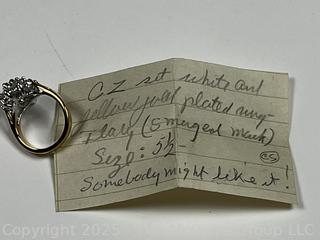 CZ set white and
yellow gold plated ring
Italy (Smerged mark)
Size: 5½
Somebody might like it!
Copyright 2025
Group LLC